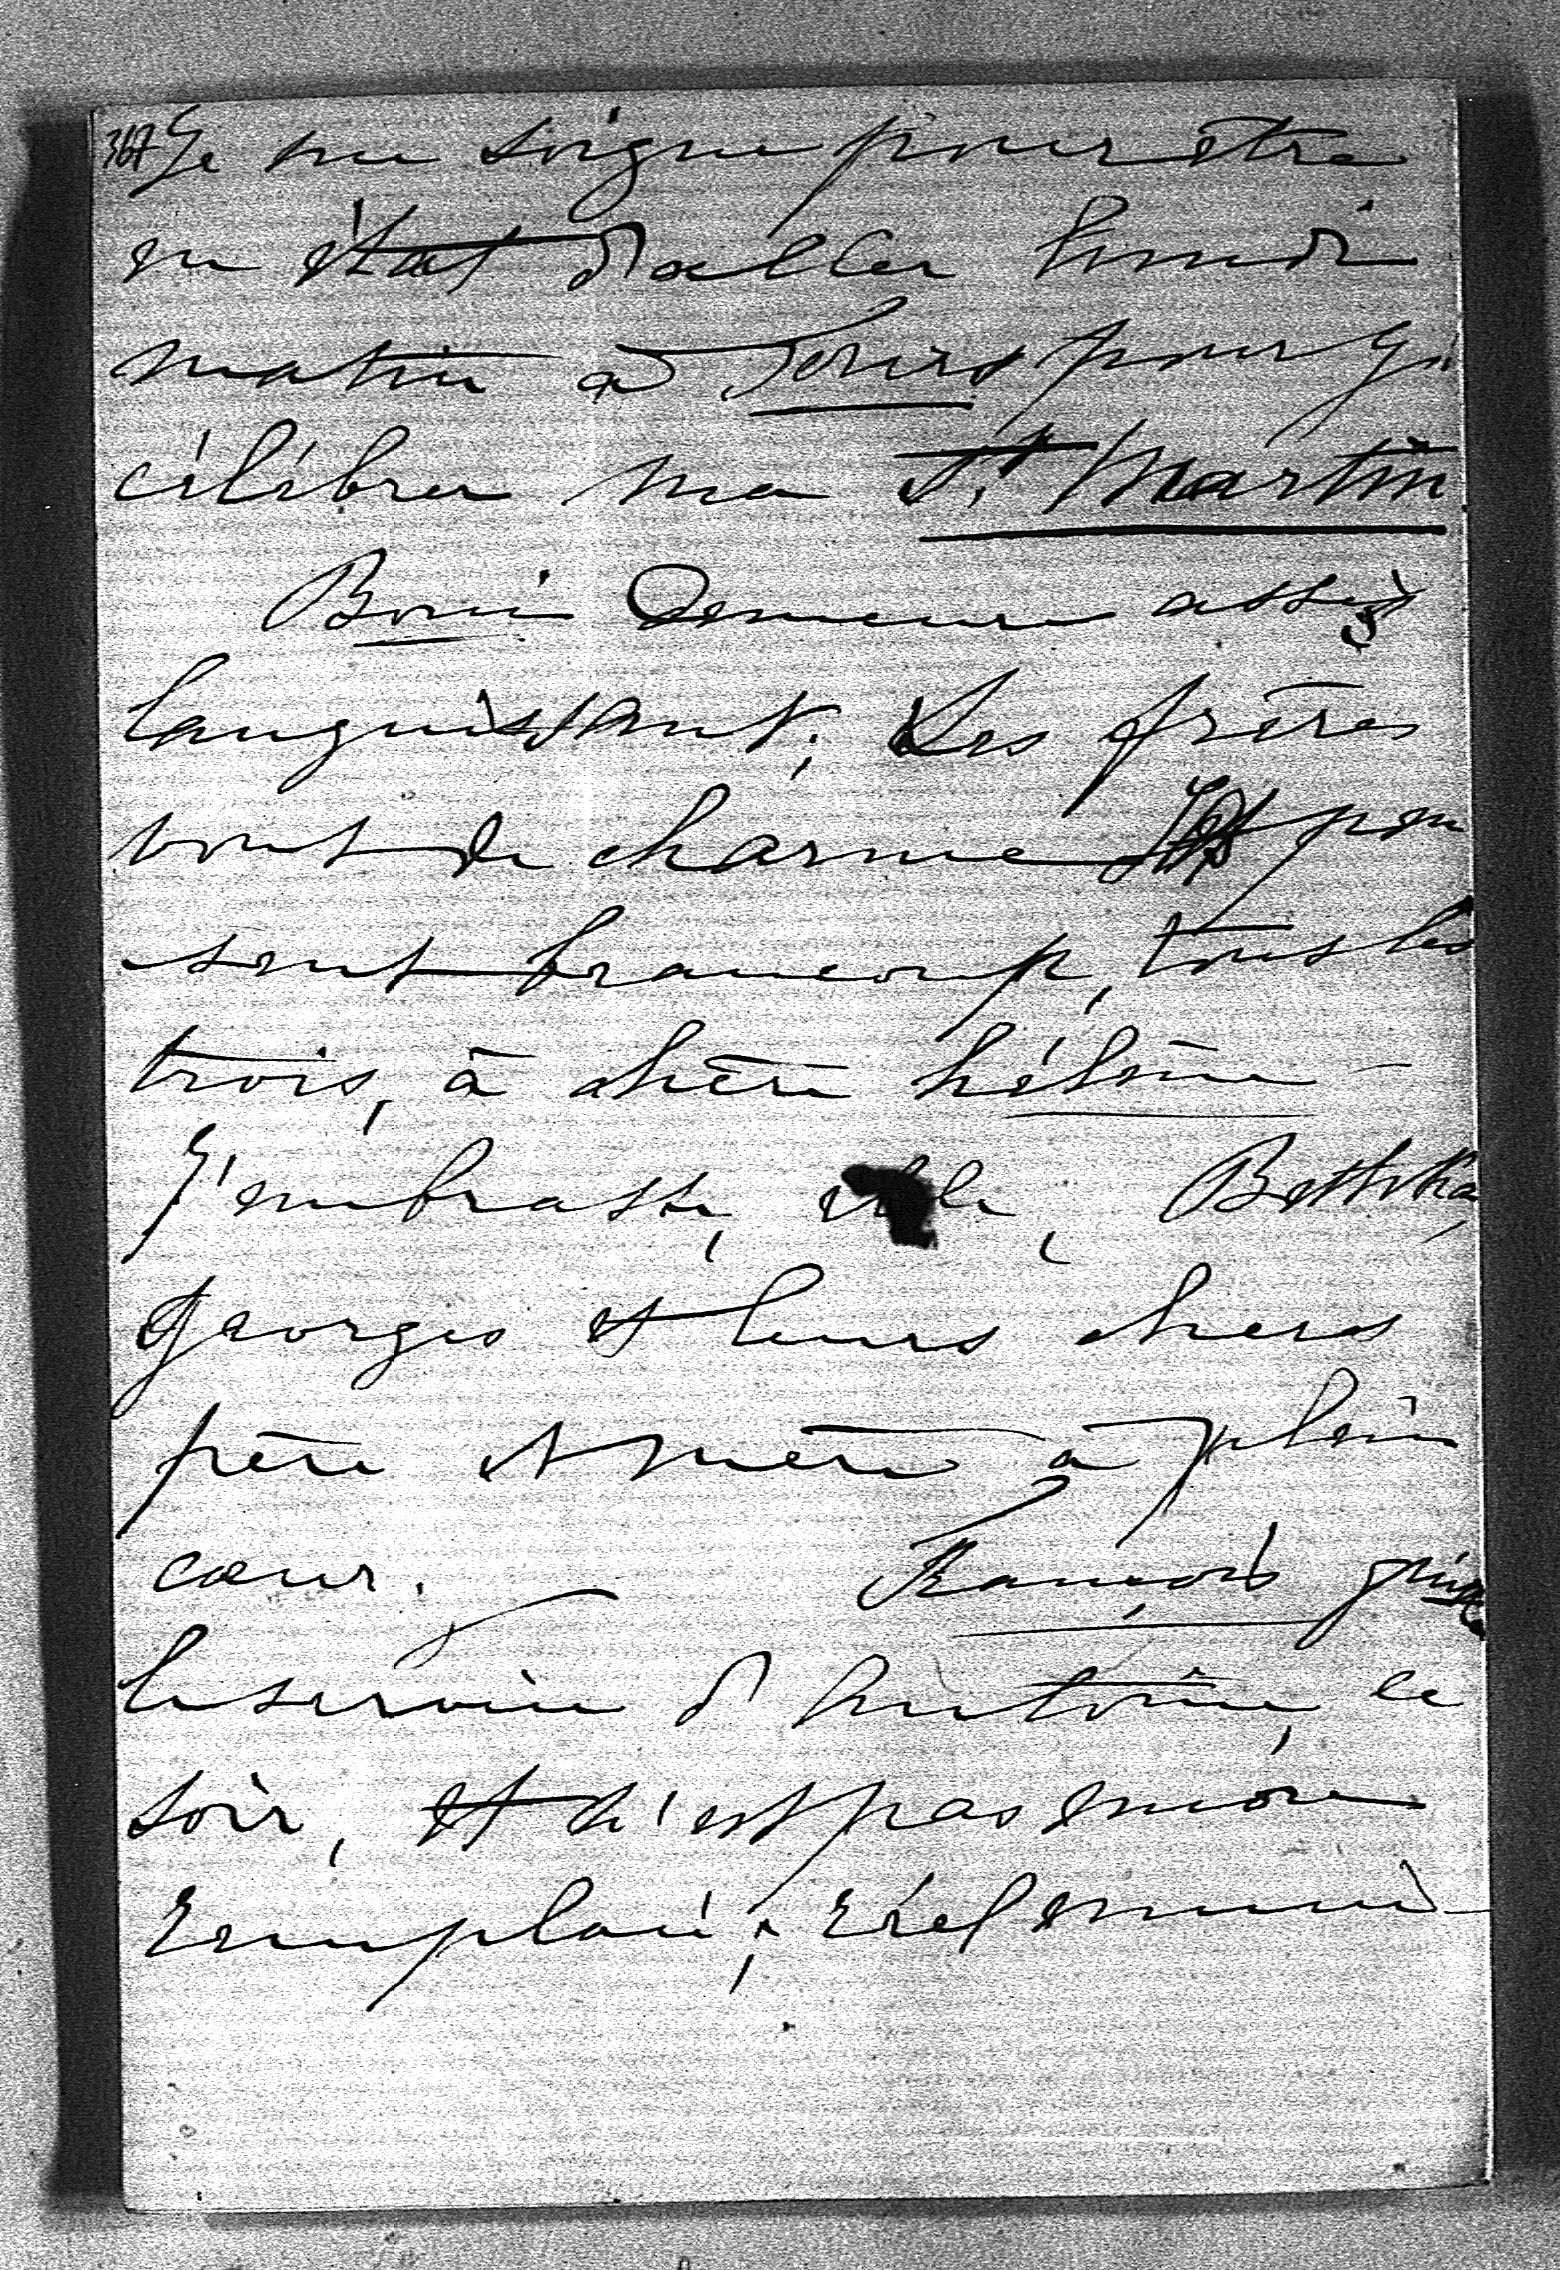 367 Je me soigne pour être
en état d'aller lundi
matin à Tours pour y
célébrer ma St Martin
Boni demeure assez
languissant; Les frères
vont de charme et pen
sent beaucoup, tous les
trois, à chère hélène —
J'embrasse, elle,
Georges et leurs chers
père et mère à plein
cœur. François
le service d'Antoine, ce
soir, et n'est pas encore
remplacé;